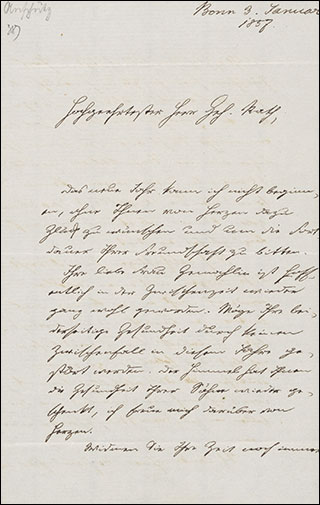 Anschütz
Bonn 3. Januar
1857.
Hochgeehrtester Herr Geh. Rath,
Das neue Jahr kann ich nicht beginn-
en, ohne Ihnen von Herzen dazu
Glück zu wünschen und um die Fort-
dauer Ihrer Freundschaft zu bitten.
Ihre liebe Frau Gemahlin ist hoff-
entlich in der Zwischenzeit wieder
ganz wohl geworden. Möge Ihre bei-
derseitige Gesundheit durch keinen
Zwischenfall in diesem Jahre ge-
stört werden. Der Himmel hat Ihnen
die Gesundheit Ihrer Söhne wieder ge-
schenkt, ich freue mich darüber von
Herzen.
Widmen Sie Ihre Zeit noch immer